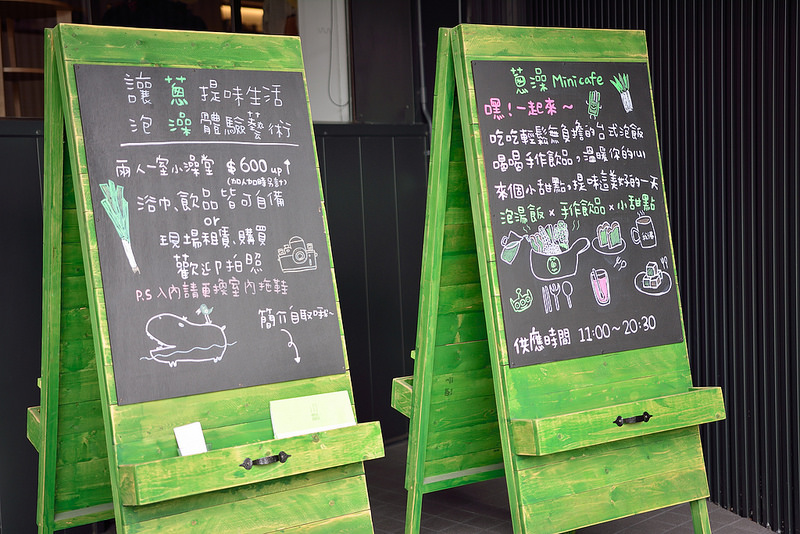 讓 蔥 提味生活
泡 澡 體驗藝術
兩人一室小澡堂 $600 up↑
(加人加時另計)
浴巾、飲品 皆可自備
or
現場租賃、購買
歡迎拍照
P.S 入內請更換室內拖鞋
簡介自取哦~
蔥澡 Mini cafe
嘿!一起來~
吃吃輕鬆無負擔的台式泡飯
喝喝手作飲品,溫暖你的心
來個小甜點,提味這美好的一天
泡湯飯 × 手作飲品 × 小甜點
供應時間 11:00~20:30